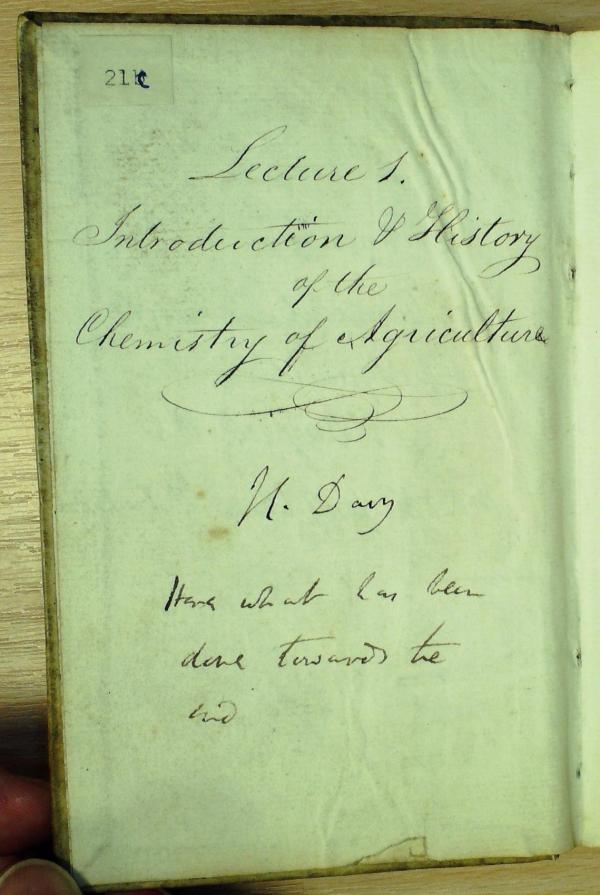 21C
Lecture 1.
Introduction & History
of the
Chemistry of Agriculture
H. Davy
Here what has been
done towards the
end